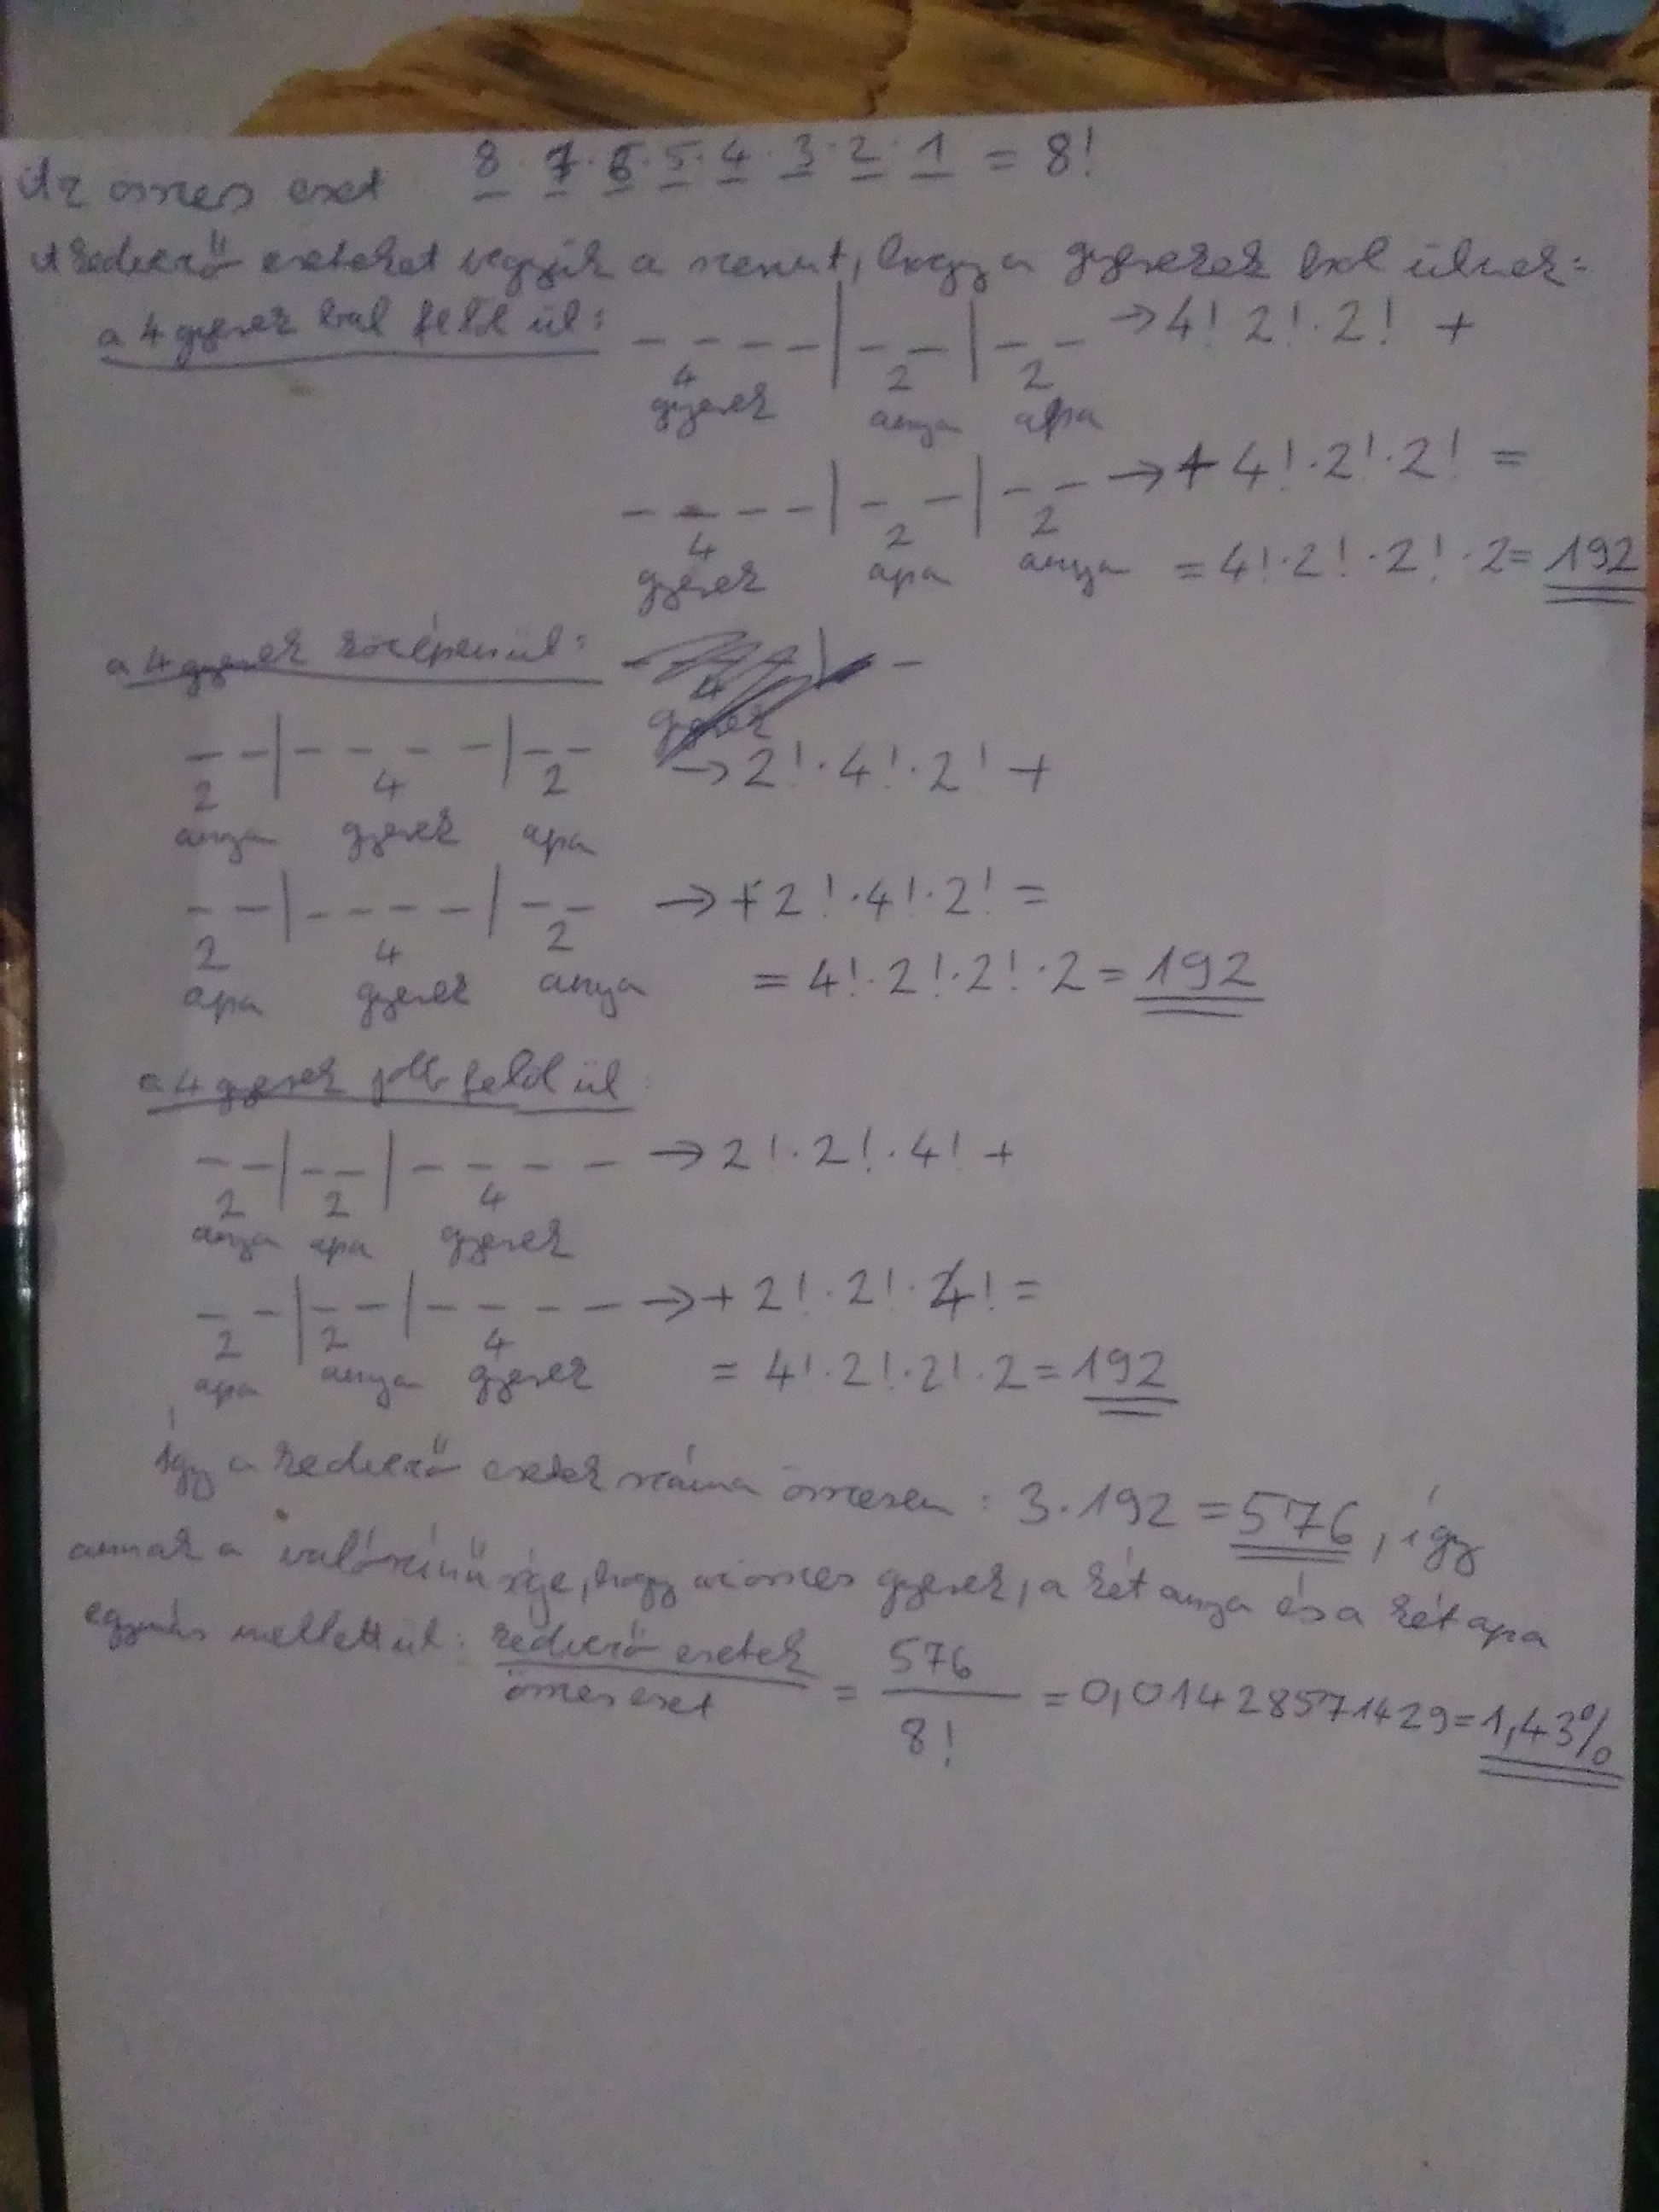 Az összes eset 8 · 7 · 6 · 5 · 4 · 3 · 2 · 1 = 8!
A kedvező eseteket vegyük a szerint, hogy a gyerekek hol ülnek:
a 4 gyerek bal felől ül: _ _ _ _ | _ _ | _ _ → 4! 2! · 2! +
4 2 2
gyerek anya apa
_ _ _ _ | _ _ | _ _ → + 4! · 2! · 2! =
4 2 2
gyerek apa anya = 4! · 2! · 2! · 2 = 192
a 4 gyerek középen ül:
_ _ | _ _ _ _ | _ _ → 2! · 4! · 2! +
2 4 2
anya gyerek apa
_ _ | _ _ _ _ | _ _ → + 2! · 4! · 2! =
2 4 2
apa gyerek anya = 4! · 2! · 2! · 2 = 192
a 4 gyerek jobb felől ül:
_ _ | _ _ | _ _ _ _ → 2! · 2! · 4! +
2 2 4
anya apa gyerek
_ _ | _ _ | _ _ _ _ → + 2! · 2! · 4! =
2 2 4
apa anya gyerek = 4! · 2! · 2! · 2 = 192
Így a kedvező esetek száma összesen: 3 · 192 = 576, így
annak a valószínűsége, hogy az összes gyerek, a két anya és a két apa
egymás mellett ül: kedvező esetek / összes eset = 576 / 8! = 0,01428571429 = 1,43%